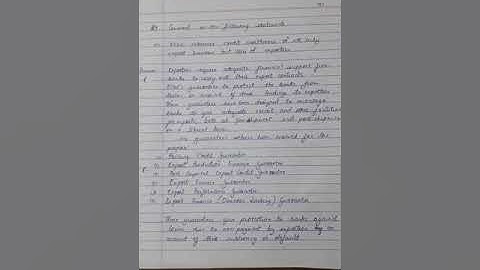 Q3 Comment on the following statements
a) ECGC enhances credit worthiness of not only
export business but also of exporters
Answer Exporters require adequate financial support from
banks to carry out their export contracts.
ECGC's guarantees to protect the banks from
losses on account of their lending to exporters.
These guarantees have been designed to encourage
banks to give adequate credit and other facilities
for exports, both at pre-shipment and post-shipment
on a liberal basis.
guarantees have been evolved for this
purpose
i) Packing Credit Guarantee
ii) Export Production Finance Guarantee
iii) Post Shipment Export Credit Guarantee
iv) Export Finance Guarantee
v) Export Performance Guarantee
vi) Export Finance (Overseas Lending) Guarantee
These guarantees give protection to banks against
losses due to non-payment by exporters on
account of their insolvency or default